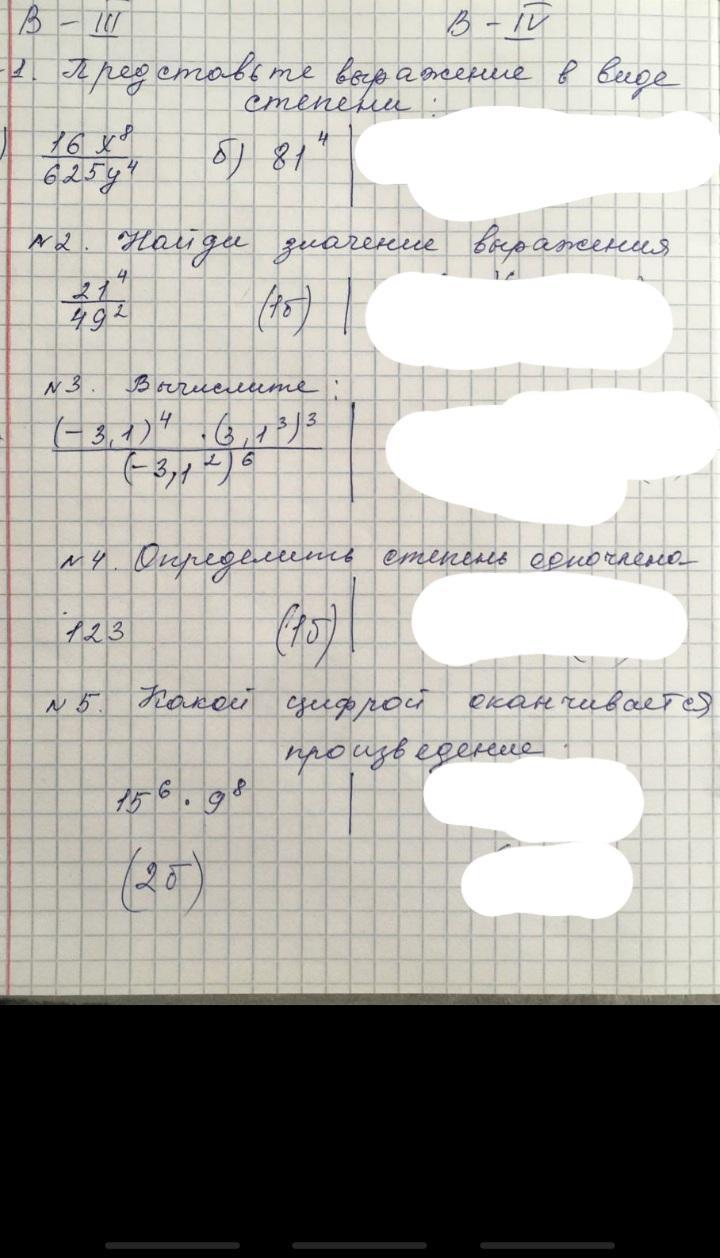 В - III В - IV
1. Представьте выражение в виде
степени:
) 16 x⁸ / 625y⁴ б) 81⁴
№2. Найди значение выражения
21⁴ / 49² (1б)
№3. Вычислите:
(-3,1)⁴ · (3,1³)³ / (-3,1²)⁶
№4. Определить степень одночлена
123 (1б)
№5. Какой цифрой оканчивается
произведение
15⁶ · 9⁸
(2б)